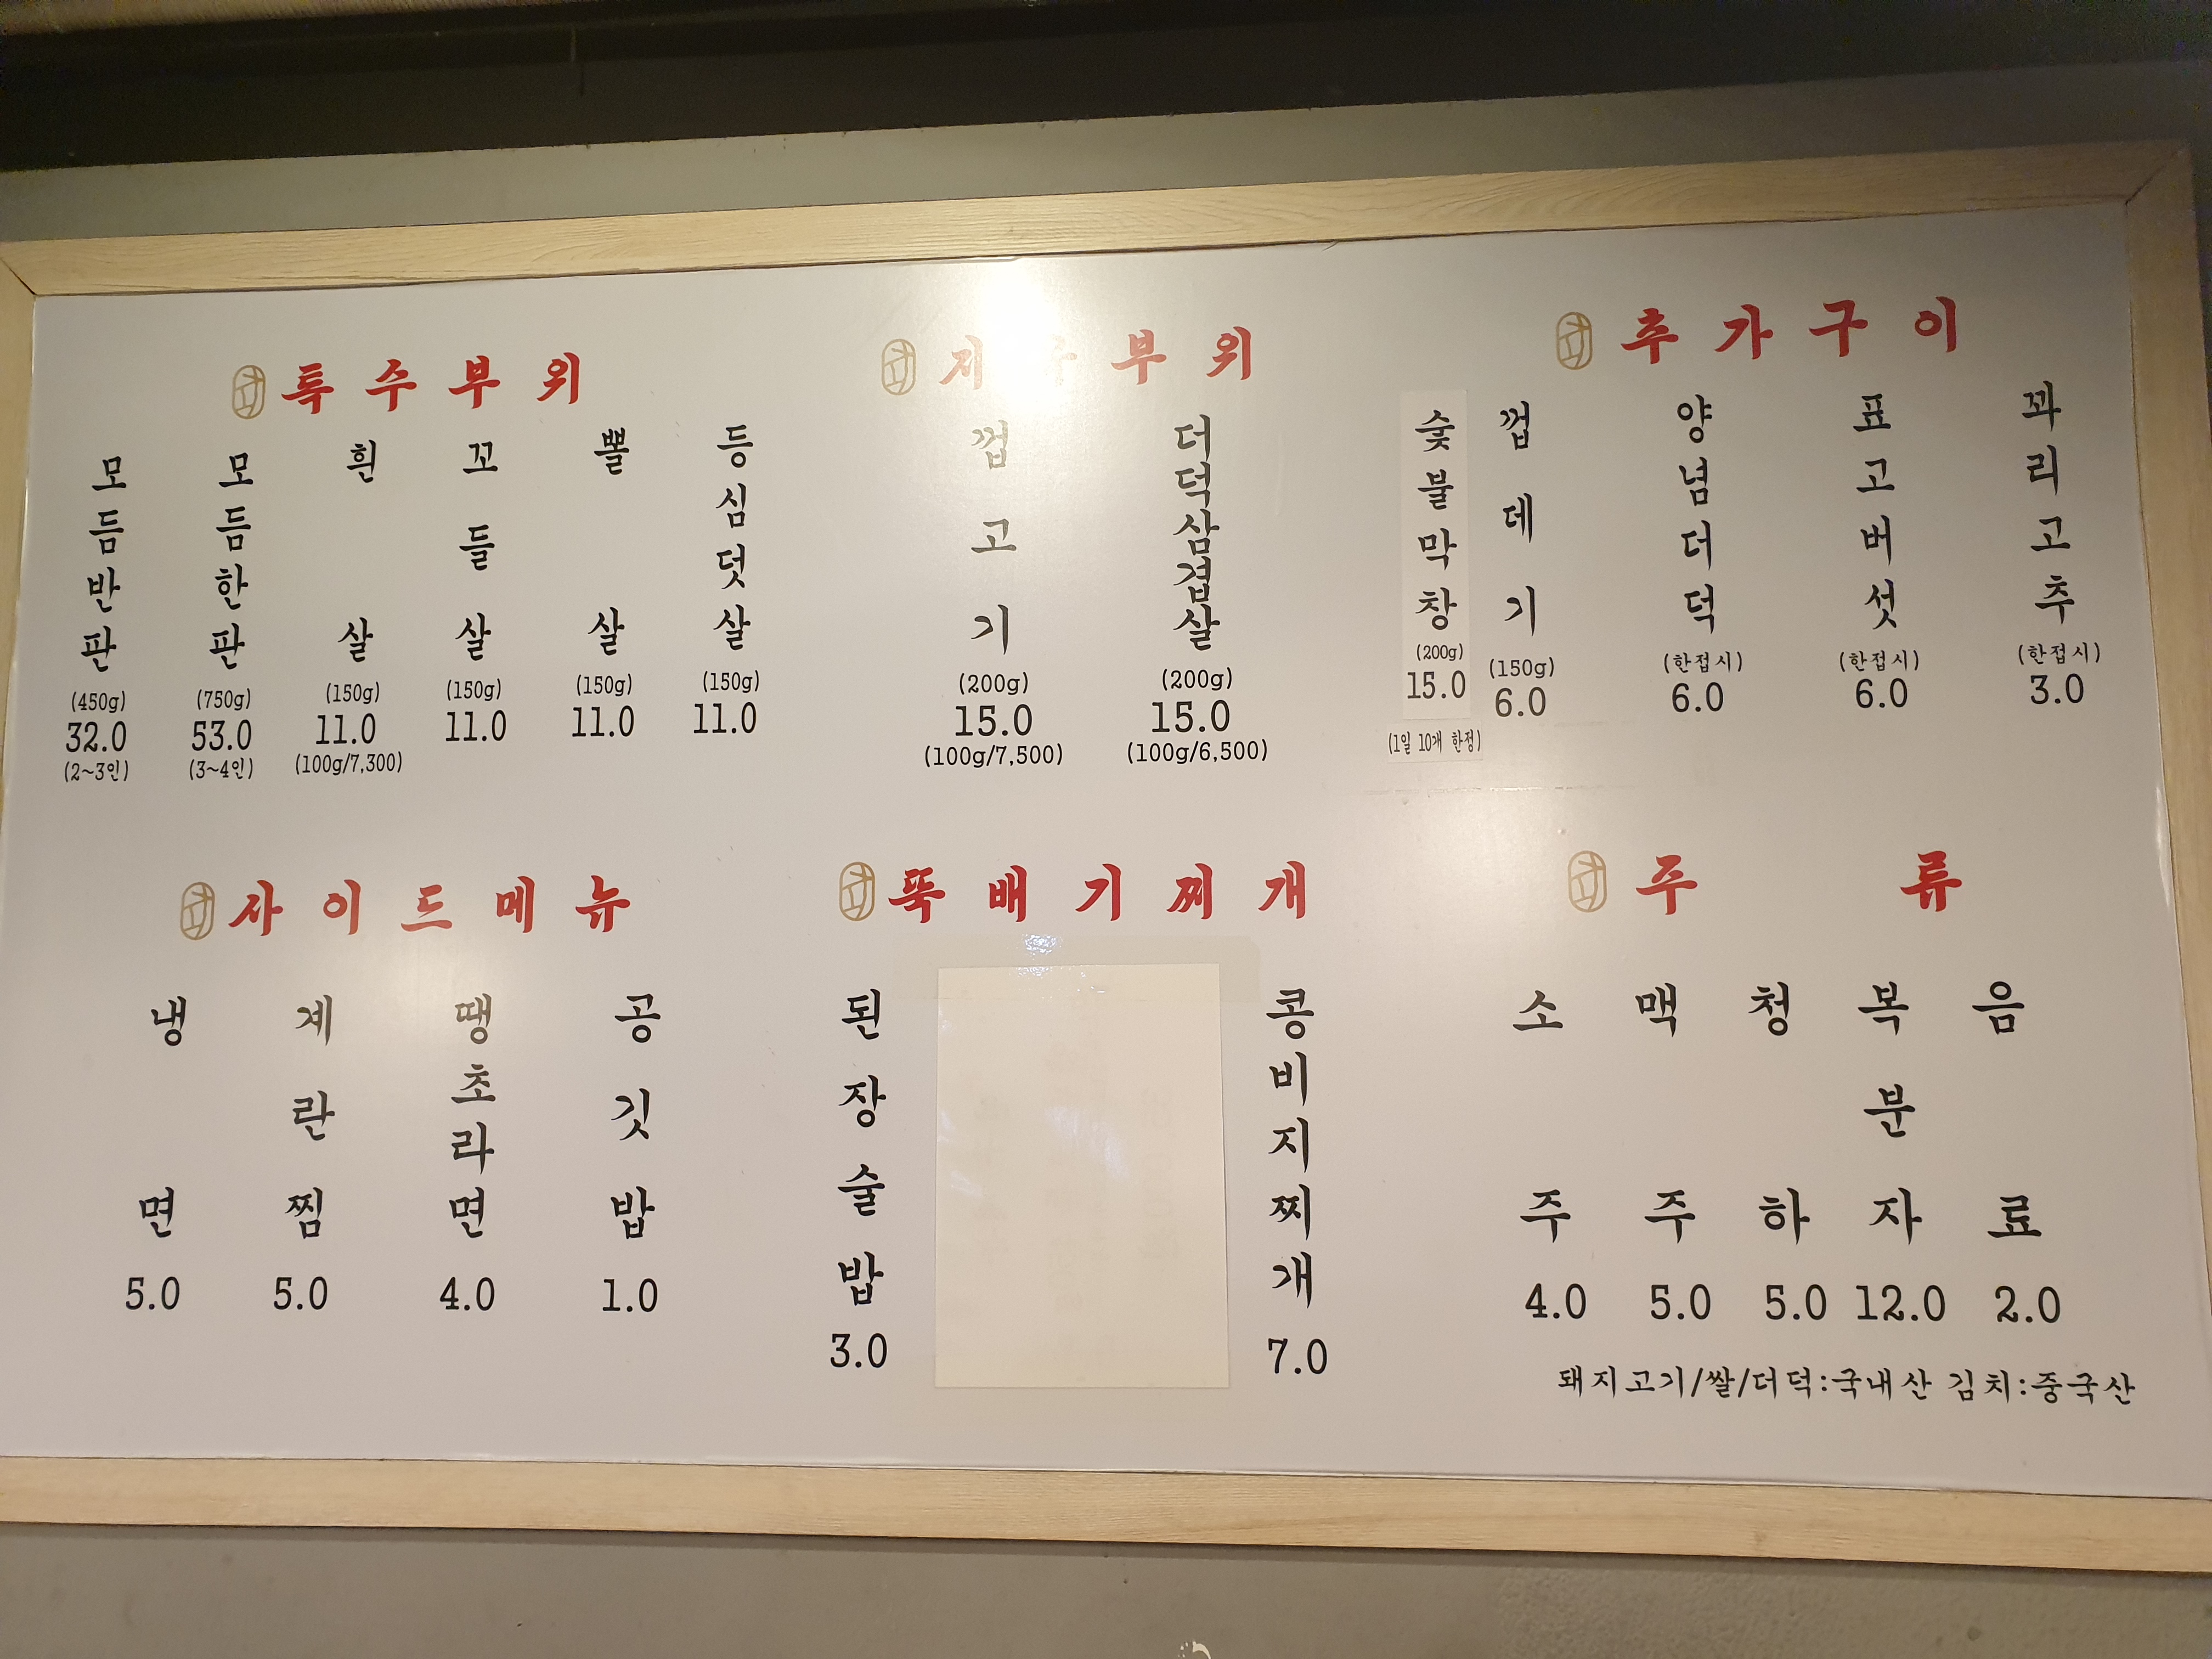 특수부위
모듬반판 (450g) 32.0 (2~3인)
모듬한판 (750g) 53.0 (3~4인)
흰살 (150g) 11.0 (100g/7,300)
꼬들살 (150g) 11.0
뽈살 (150g) 11.0
등심덧살 (150g) 11.0
부위
껍고기 (200g) 15.0 (100g/7,500)
더덕삼겹살 (200g) 15.0 (100g/6,500)
추가구이
숯불막창 (200g) 15.0 (1일 10개 한정)
껍데기 (150g) 6.0
양념더덕 (한접시) 6.0
표고버섯 (한접시) 6.0
꽈리고추 (한접시) 3.0
사이드메뉴
냉면 5.0
계란찜 5.0
땡초라면 4.0
공깃밥 1.0
뚝배기찌개
된장술밥 3.0
콩비지찌개 7.0
주류
소주 4.0
맥주 5.0
청하 5.0
복분자 12.0
음료 2.0
돼지고기/쌀/더덕:국내산 김치:중국산